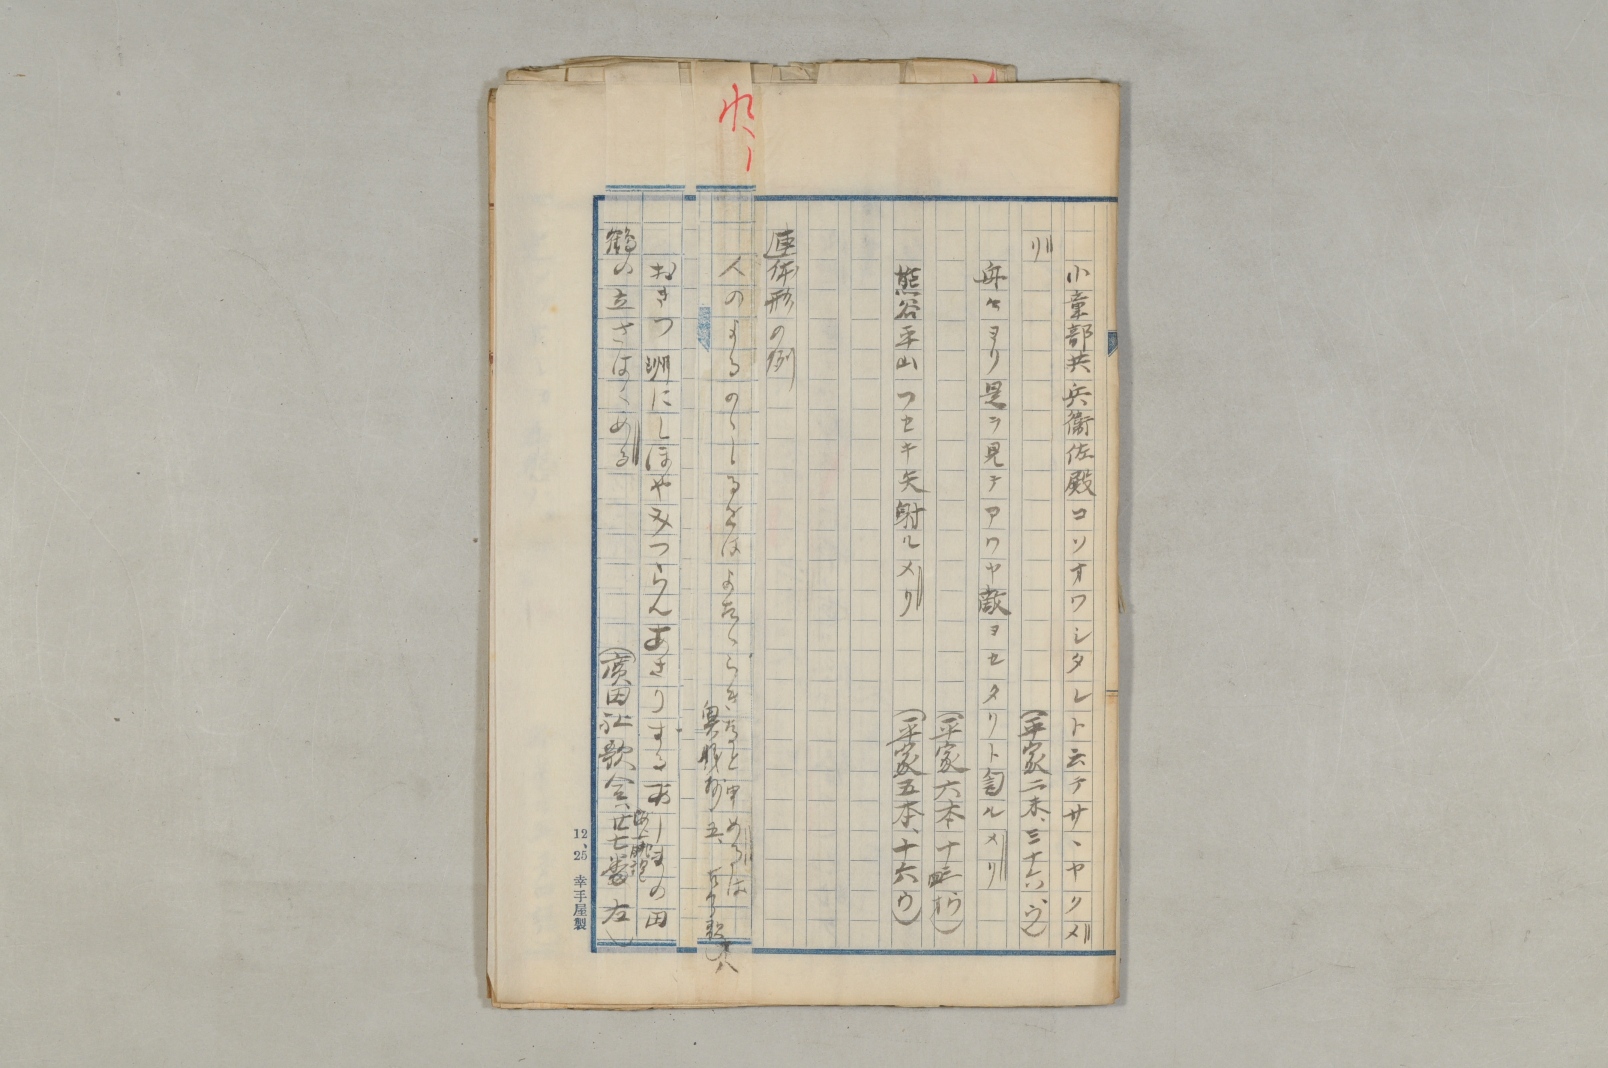 小童部共兵衞佐殿コソオワシタレト云テサヽヤクメ
リ
（平家二末、三十六ウ）
舟々ヨリ是ヲ見テアワヤ敵ヨセタリト匐ルメリ
（平家六本十三ウ）
熊谷平山フセキ矢射ルメリ
（平家五本、十六ウ）
連体形の例
人のよるのゝしるをはよからきなと申めるは
奥
おきつ洲にしほやみつらんあさりするあしまの田
鶴の立さはくめる
（廣田社歌合、廿七番左）
12、25 幸手屋製